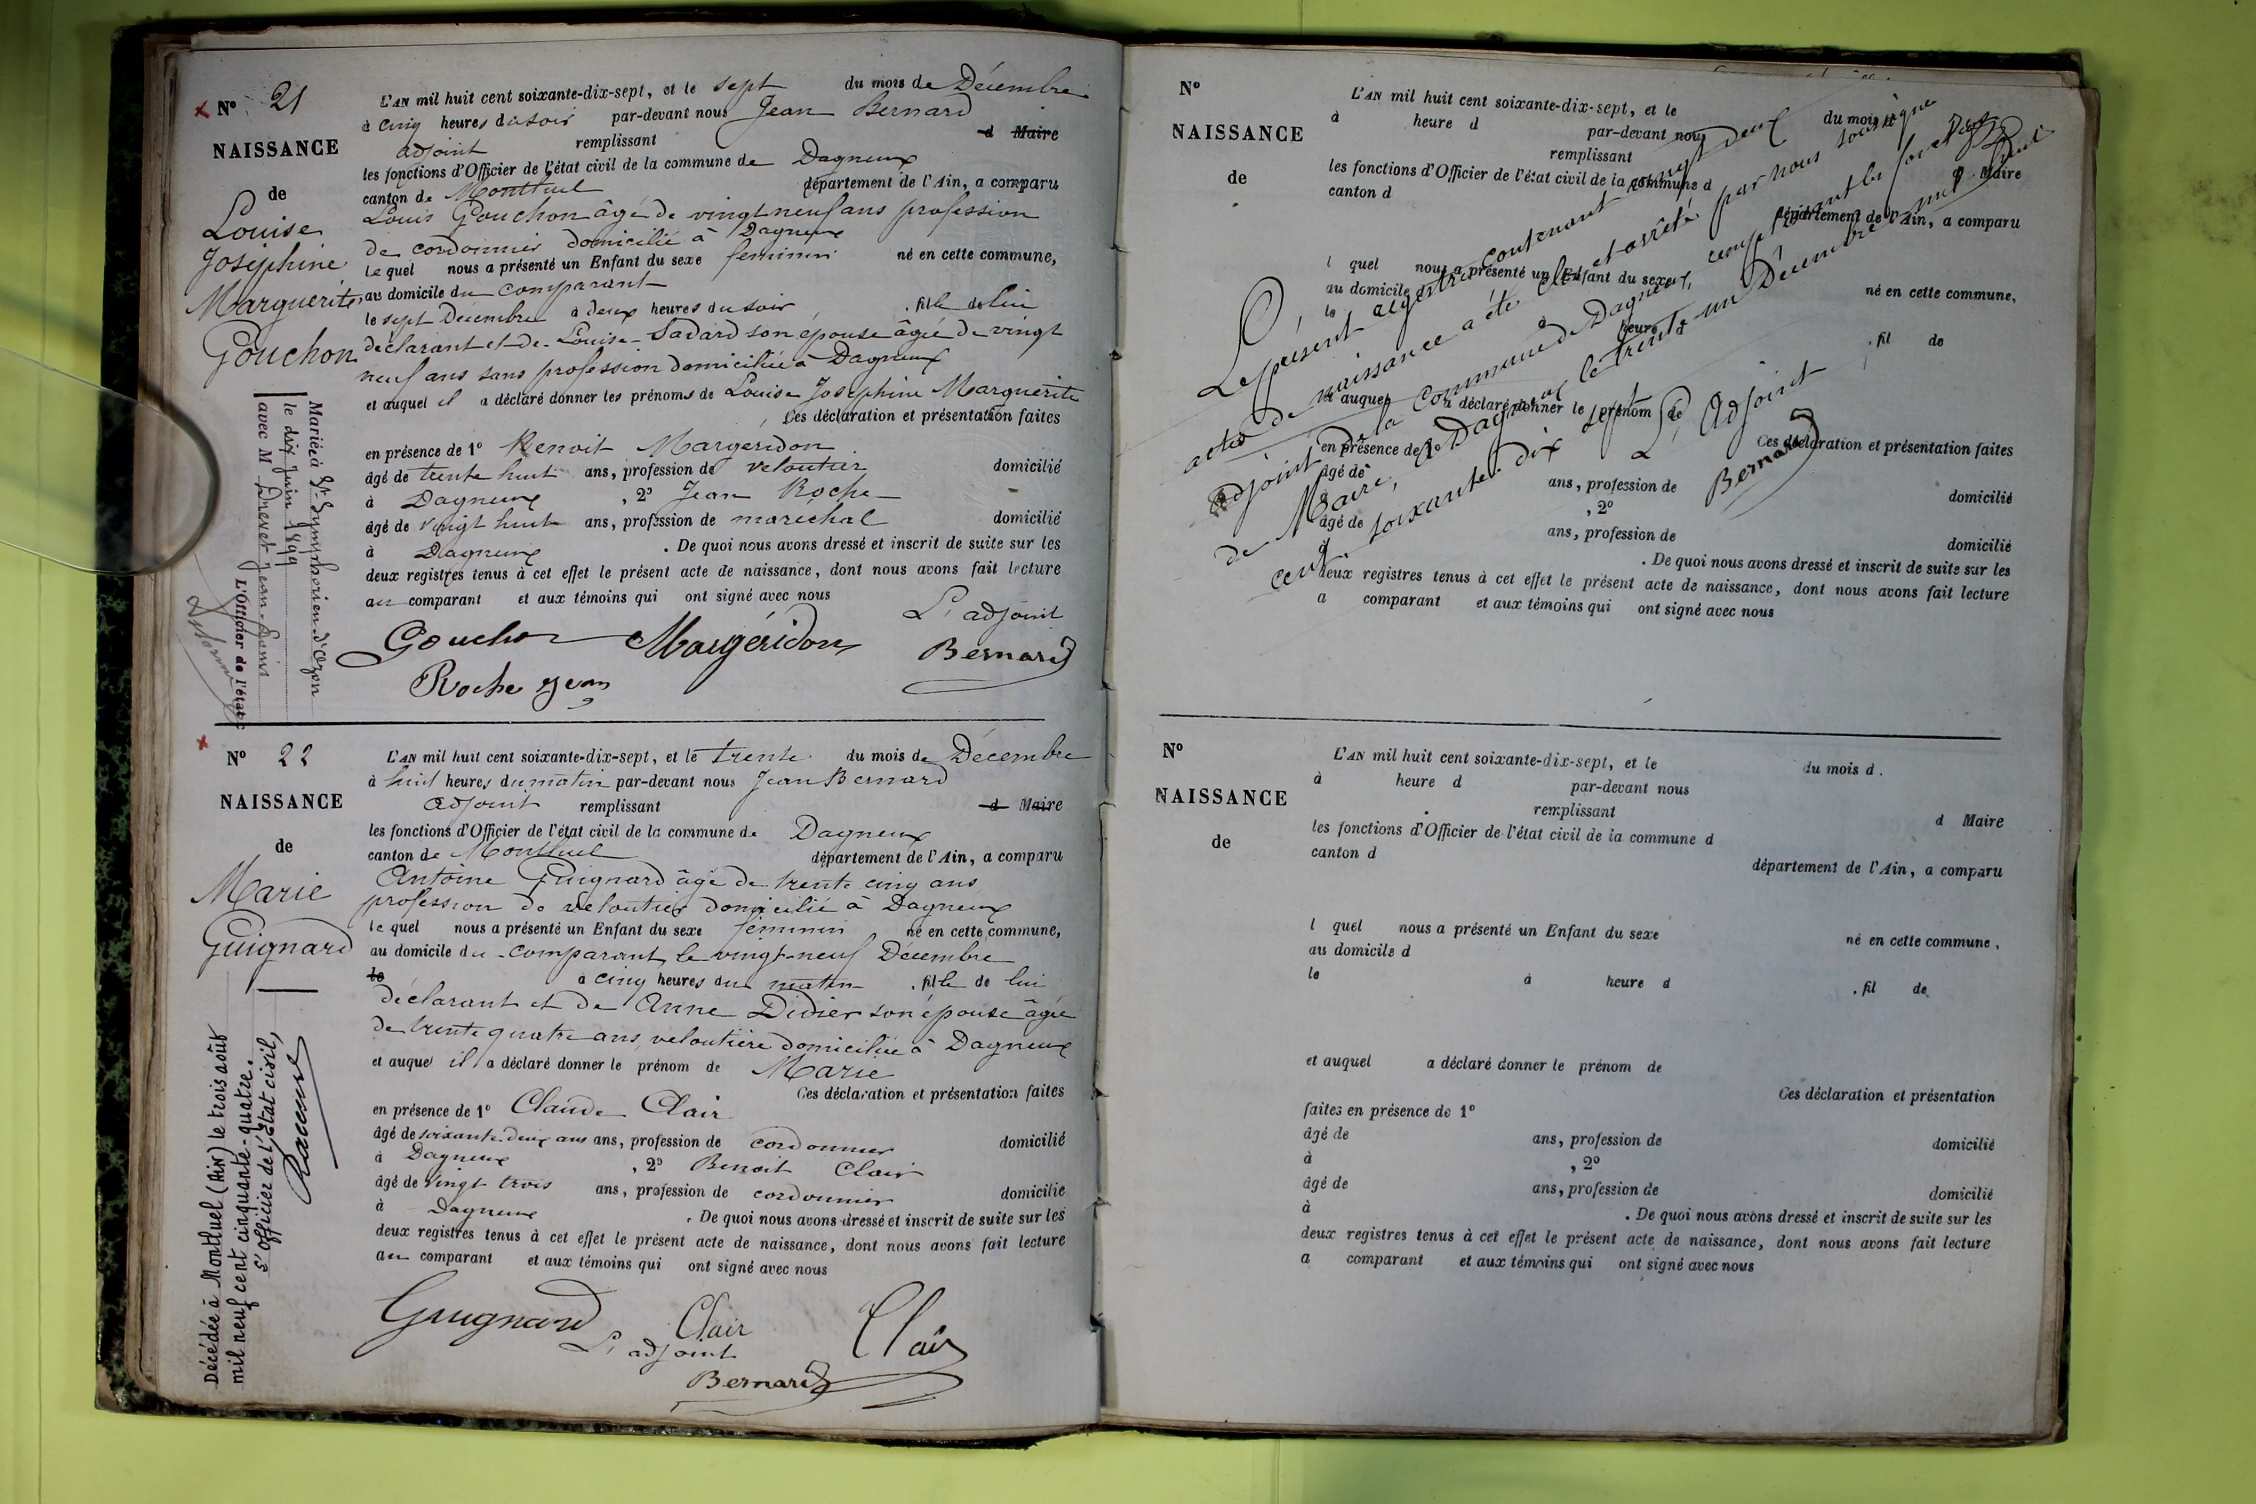 N° 21
NAISSANCE
de
Louise
Joséphine
Marguerite
Gouchon
Mariée à St-Symphorien d'Ozon
le dix Juin 1899
avec M
L'Officier de l'état c
L'AN mil huit cent soixante-dix-sept, et le sept du mois de Décembre
à cinq heures du soir par-devant nous Jean Bernard
adjoint remplissant d Maire
les fonctions d'Officier de l'état civil de la commune de Dagneux
canton de Montluel département de l'Ain, a comparu
Louis Gouchon âgé de vingt neuf ans profession
de cordonnier domicilié à Dagneux
le quel nous a présenté un Enfant du sexe féminin né en cette commune,
au domicile du comparant
le sept Decembre à deux heures du soir . fille de lui
déclarant et de Louise Sadard son épouse âgée de vingt
neuf ans sans profession domiciliée à Dagneux
et auquel il a déclaré donner les prénoms de Louise Joséphine Marguerite
Ces déclaration et présentation faites
en présence de 1° Benoit Margéridon
âgé de trente huit ans, profession de veloutier domicilié
à Dagneux , 2° Jean Roche
âgé de vingt huit ans, profession de maréchal domicilié
à Dagneux . De quoi nous avons dressé et inscrit de suite sur les
deux registres tenus à cet effet le présent acte de naissance, dont nous avons fait lecture
au comparant et aux témoins qui ont signé avec nous
L'adjoint
Gouchon Margéridon Bernard
Roche Jean
N° 22
NAISSANCE
de
Marie
Guignard
Décédée à Montluel (Ain) le trois août
mil neuf cent cinquante-quatre.
S' officier de l'État civil,
L'AN mil huit cent soixante-dix-sept, et le trente du mois de Décembre
à huit heures du matin par-devant nous Jean Bernard
adjoint remplissant d Maire
les fonctions d'Officier de l'état civil de la commune de Dagneux
canton de Montluel département de l'Ain, a comparu
Antoine Guignard âgé de trente cinq ans
profession de veloutier domicilié à Dagneux
le quel nous a présenté un Enfant du sexe féminin né en cette commune,
au domicile du comparant le vingt-neuf Décembre
le à cinq heures du matin . fille de lui
déclarant et de Anne Didier son épouse âgée
de trente quatre ans, veloutière domiciliée à Dagneux
et auquel il a déclaré donner le prénom de Marie
Ces déclaration et présentation faites
en présence de 1° Claude Clair
âgé de soixante-deux ans ans, profession de cordonnier domicilié
à Dagneux , 2° Benoit Clair
âgé de vingt trois ans, profession de cordonnier domicilié
à Dagneux . De quoi nous avons dressé et inscrit de suite sur les
deux registres tenus à cet effet le présent acte de naissance, dont nous avons fait lecture
au comparant et aux témoins qui ont signé avec nous
Guignard Clair Clair
L'adjoint
Bernard
N°
NAISSANCE
de
L'AN mil huit cent soixante-dix-sept, et le du mois d
à heure d par-devant nous
remplissant d Maire
les fonctions d'Officier de l'état civil de la commune d
canton d département de l'Ain, a comparu
l quel nous a présenté un Enfant du sexe né en cette commune,
au domicile d
le à heure d . fil de
et auquel a déclaré donner le prénom de
Ces déclaration et présentation faites
en présence de 1°
âgé de ans, profession de domicilié
à , 2°
âgé de ans, profession de domicilié
à . De quoi nous avons dressé et inscrit de suite sur les
deux registres tenus à cet effet le présent acte de naissance, dont nous avons fait lecture
a comparant et aux témoins qui ont signé avec nous
Le présent registre contenant vingt deux
actes de naissance a été clos et arrêté par nous soussigné
adjoint de la commune de Dagneux, remplissant les fonctions
de Maire, à Dagneux le trente un Décembre mil huit
cent soixante dix sept
L'Adjoint
Bernard
N°
NAISSANCE
de
L'AN mil huit cent soixante-dix-sept, et le du mois d
à heure d par-devant nous
remplissant d Maire
les fonctions d'Officier de l'état civil de la commune d
canton d département de l'Ain, a comparu
l quel nous a présenté un Enfant du sexe né en cette commune,
au domicile d
le à heure d . fil de
et auquel a déclaré donner le prénom de
Ces déclaration et présentation
faites en présence de 1°
âgé de ans, profession de domicilié
à , 2°
âgé de ans, profession de domicilié
à . De quoi nous avons dressé et inscrit de suite sur les
deux registres tenus à cet effet le présent acte de naissance, dont nous avons fait lecture
a comparant et aux témoins qui ont signé avec nous